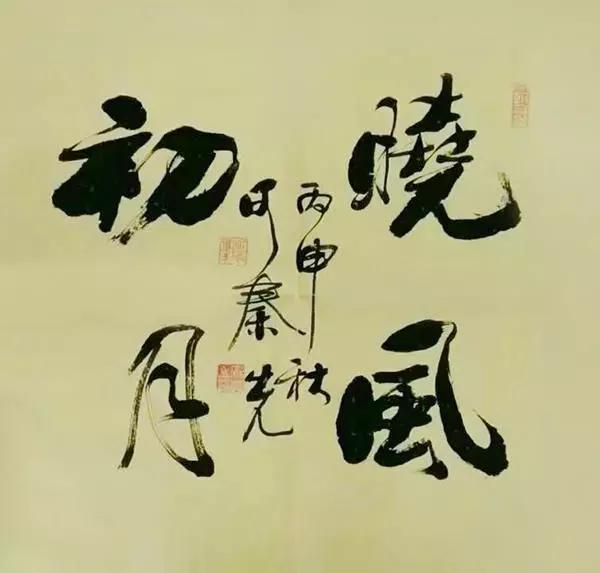 曉風
丙申秋
可秦先
初月